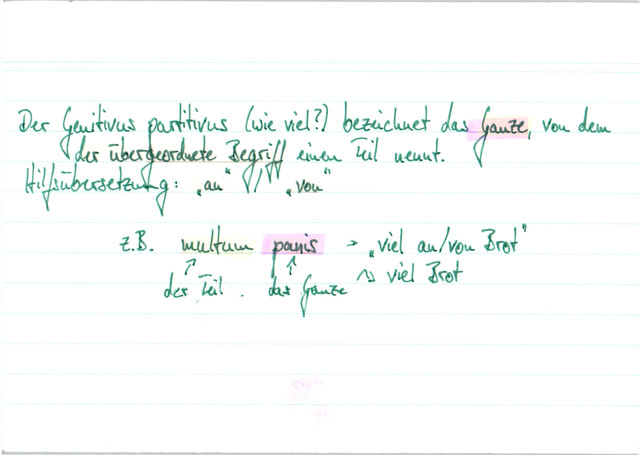 Der Genitivus partitivus (wie viel?) bezeichnet das Ganze, von dem
der übergeordnete Begriff einen Teil nennt.
Hilfsübersetzung: „an“ / „von“
z.B. multum panis → „viel an/von Brot“
↑ ↑ ↳ viel Brot
der Teil. das Ganze